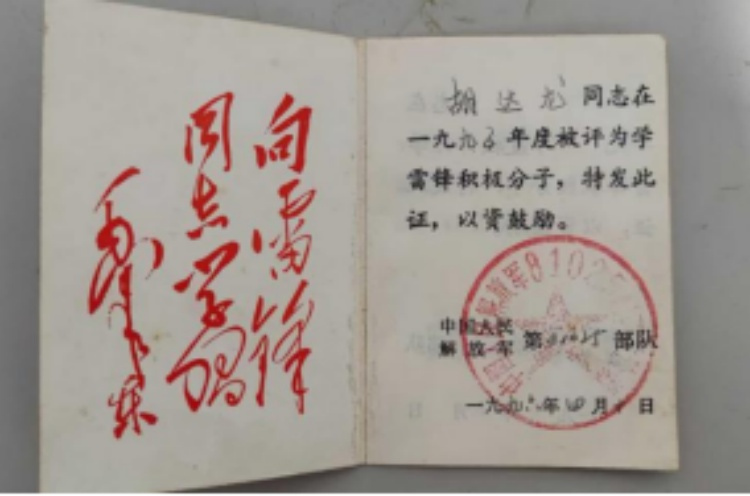 向雷锋
同志学习
毛泽东
胡达龙同志在
一九九五年度被评为学
雷锋积极分子，特发此
证，以资鼓励。
中国人民
解放军 第81025部队
一九九 年四月 日